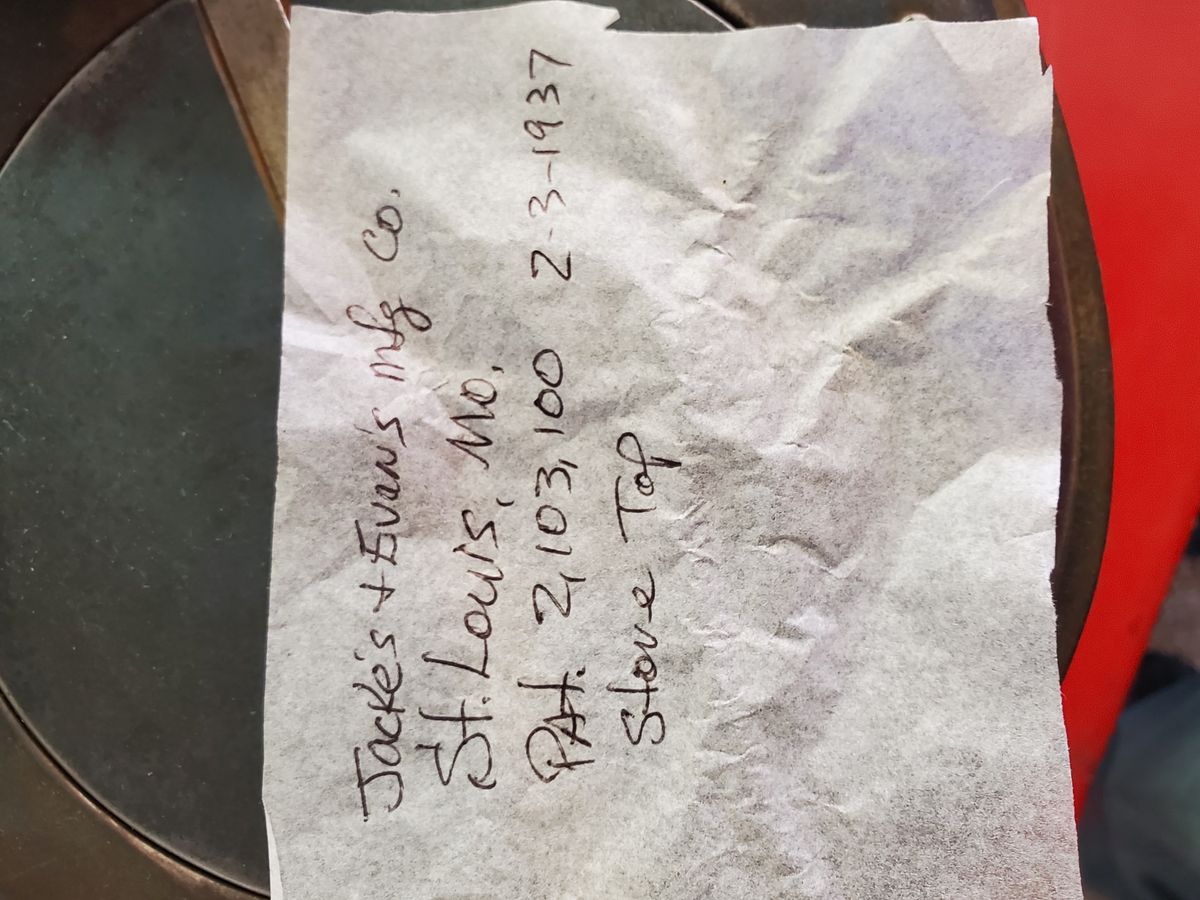 Jacke's + Evan's mfg Co.
St. Louis, Mo.
PAt. 2,103,100 2-3-1937
Stove Top